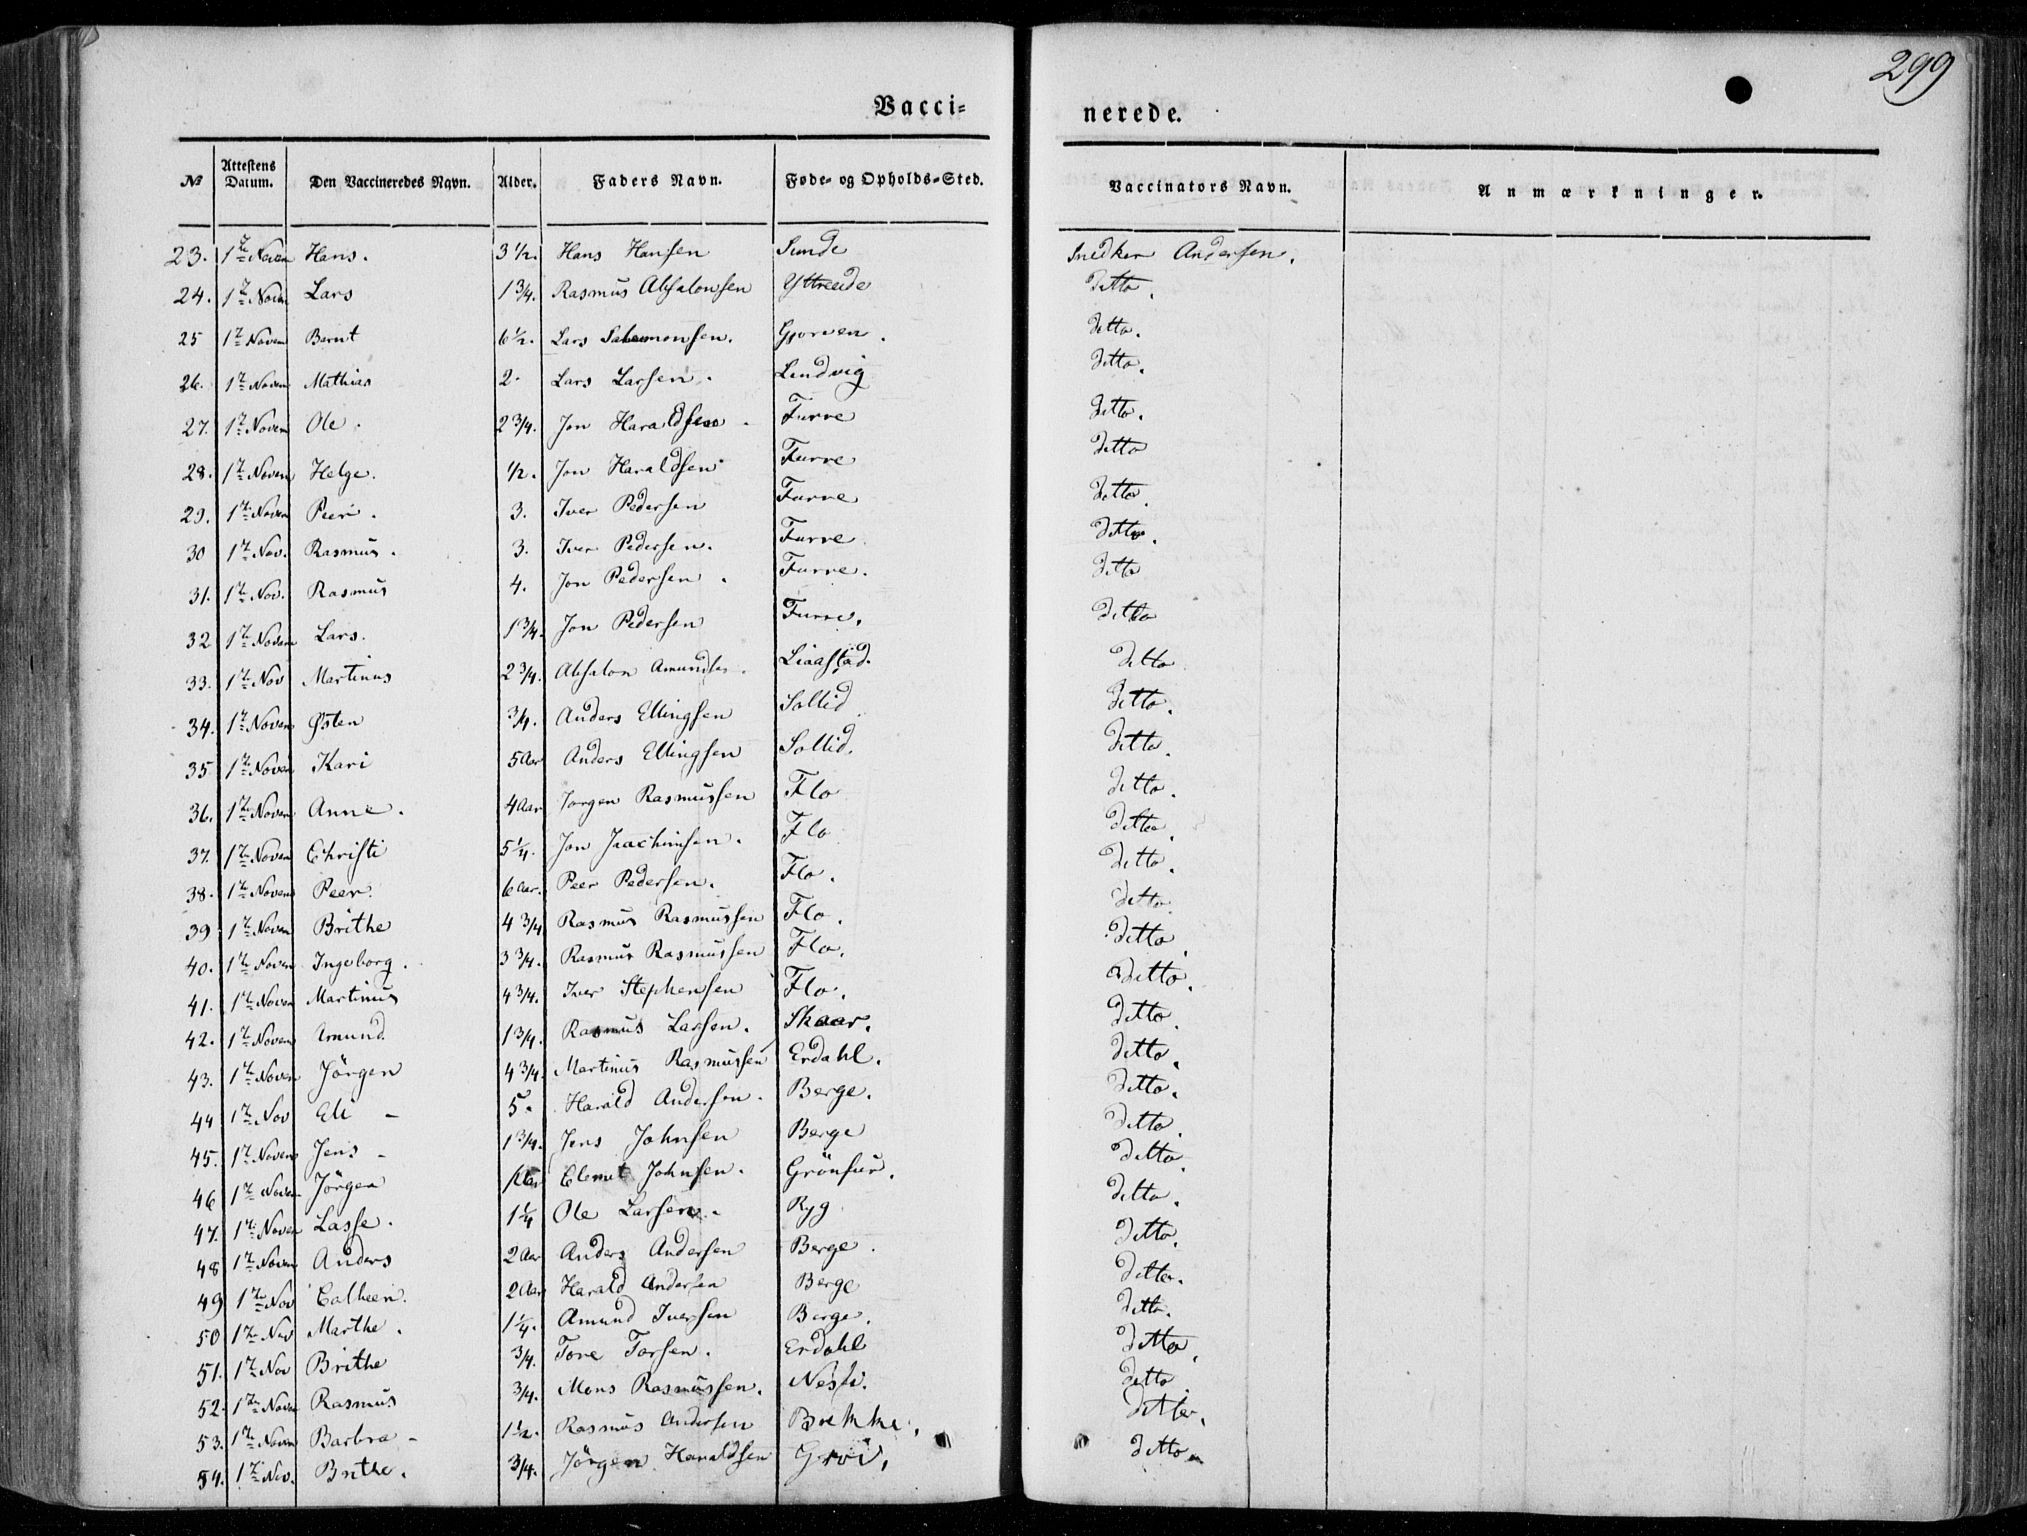 299
Vacci= nerede.
№ Attestens Datum. Den Vaccineredes Navn. Alder. Faders Navn. Føde- og Opholds-Sted. Vaccinators Navn. Anmærkninger.
23. 1te Novem Hans. 3 1/2. Hans Hansen Sunde Snedker Andersen.
24. 1te Novem Lars 1 3/4. Rasmus Absalonsen Yttreeide ditto.
25 1te Novem Bernt 6 1/2. Lars Salamonsen. Gjorven. ditto.
26. 1te Novem Mathias 2. Lars Larsen. Lindvig ditto.
27. 1te Novem Ole. 2 3/4. Jon Haraldsen. Furre ditto.
28. 1te Novem Helge. 1/2. Jon Haraldsen Furre ditto
29. 1te Novem Peer. 3. Iver Pedersen Furre ditto.
30 1te Nov. Rasmus. 3. Iver Pedersen. Furre ditto.
31. 1te Nov. Rasmus 4. Jon Pedersen. Furre. ditto
32 1te Novem Lars. 1 3/4. Jon Pedersen Furre. ditto
33. 1te Nov Martinus 2 3/4. Absalon Amundsen. Liaastad. ditto
34. 1te Novem Østen 3/4. Anders Ellingsen Sollid ditto.
35 1te Novem Kari 5 Aar Anders Ellingsen Sollid. ditto.
36. 1te Novem Anne. 4 Aar Jorgen Rasmussen Flo ditto.
37. 1te Novem Christi 5 1/4. Jon Joachimsen. Flo ditto.
38. 1te Novem Peer. 6 Aar. Peer Pedersen. Flo. ditto.
39 1te Novem Brithe 4 3/4 Rasmus Rasmussen Flo. ditto.
40. 1te Novem Ingeborg. 3 3/4. Rasmus Rasmussen Flo. ditto.
41. 1te Novem Martinus 4 3/4. Iver Stephensen Flo. ditto.
42. 1te Novem Amund. 1 3/4. Rasmus Larsen. Skaar. ditto.
43. 1te Novem Jörgen 4 3/4. Martinus Rasmussen Erdahl. ditto.
44 1te Nov Eli - 5. Harald Andersen. Berge. ditto.
45. 1te Novem Jens - 1 3/4. Jens Johnsen Berge ditto.
46 1te Novem Jörgen Aar Clemet Johnsen. Grönfur. ditto.
47. 1te Novem Lasse. 1 1/4 Ole Larsen. Ryg ditto.
48 1te Novem Anders 2 Aar Anders Andersen Berge. ditto.
49 1te Nov Catheen. 2 Aar Harald Andersen Berge ditto.
50 1te Nov Marthe. 1 1/4. Amund Iversen Berge. ditto.
51. 1te Nov Brithe 3/4. Tore Torsen. Erdahl ditto.
52. 1te Novem Rasmus 3/4. Mons Rasmussen. Nesti. ditto
53. 1te Novem Barbra - 1 1/2. Rasmus Andersen Brekke. ditto.
54. 1te Nov. Brithe. 3/4. Jörgen Haraldsen Groi. ditto.